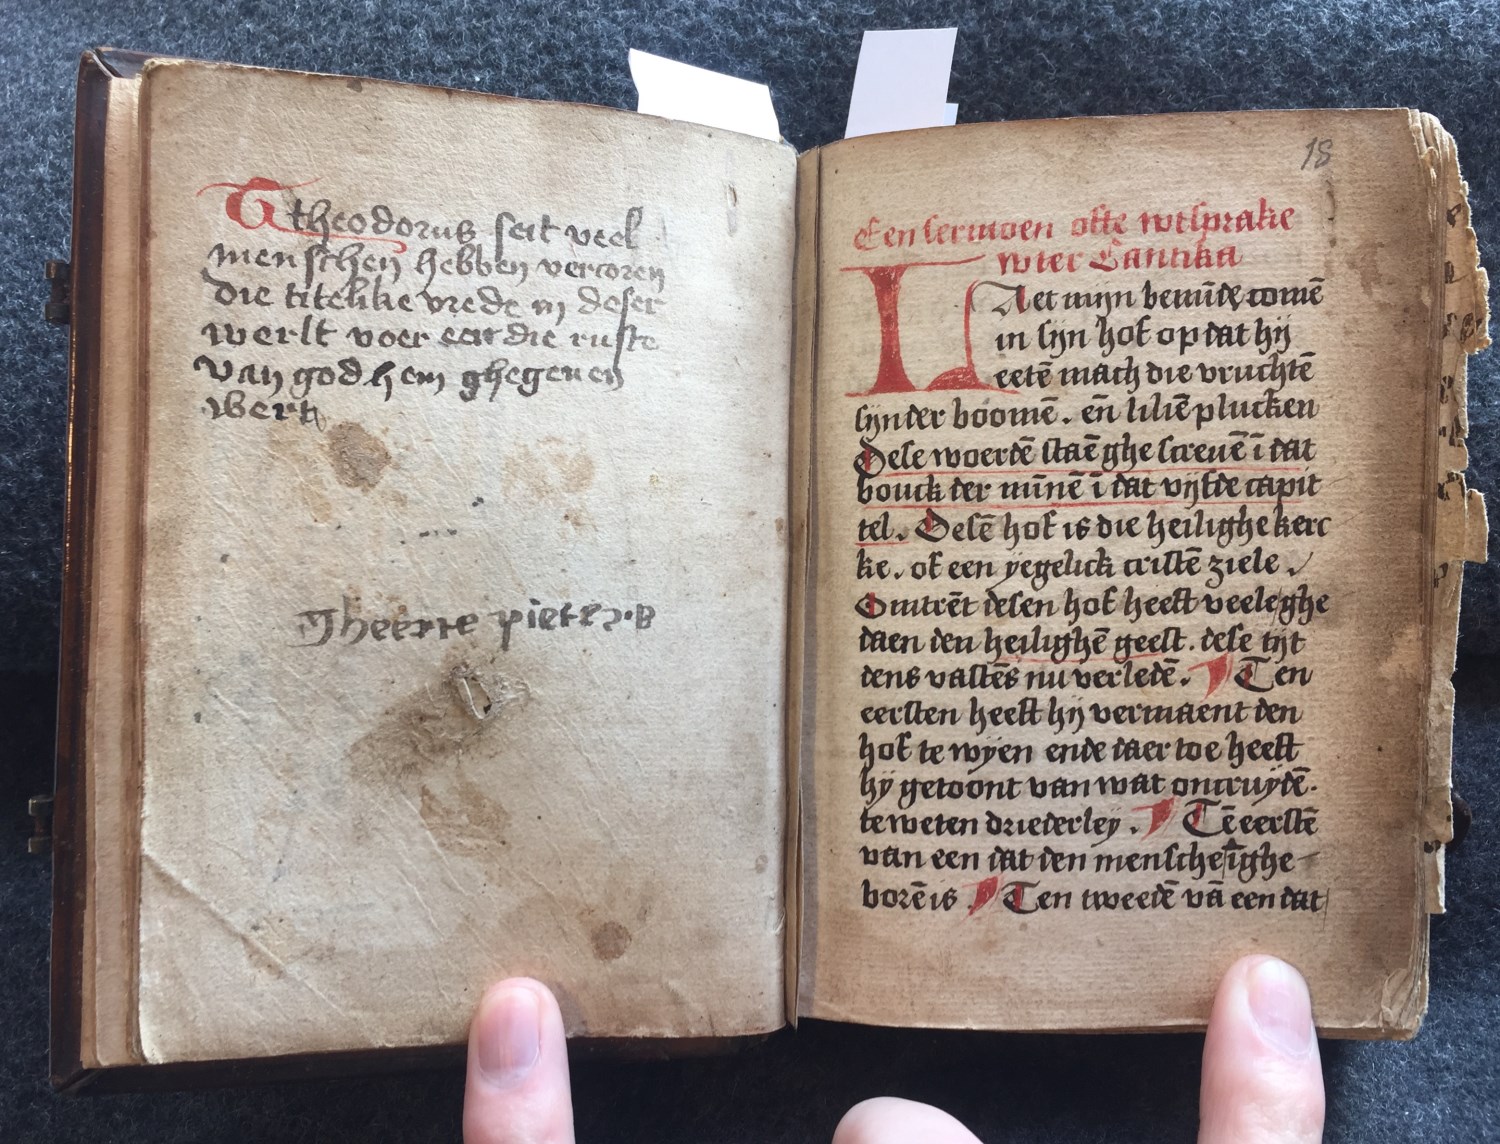 theodorus seit veel
menschen hebben vercoren
die titelike vrede in deser
werlt voer een die ruste
van god hem ghegeven
wert
Jheerre pieters.B
18
Een sermoen ofte wtsprake
wter Cantika
LAet mijn bemīde comē
in sijn hof op dat hij
eetē mach die vruchtē
sijnder boomē. eñ liliē plucken
Dese woerdē staē ghe screuē ī dat
bouck der mīnē ī dat vijfde capit
tel. Desē hof is die heilighe kerc
ke. of een yegelick cristē ziele.
Omtrēt desen hof heeft veeleghe
daen den heilighē geest. dese tijt
dens vastēs nu verledē. Ten
eersten heeft hij vermaent den
hof te wyen ende daer toe heeft
hy getoont van wat ontruydē.
te weten driederley. Tē eerstē
van een dat den mensche īghe
borē is. Ten tweedē vā een dat